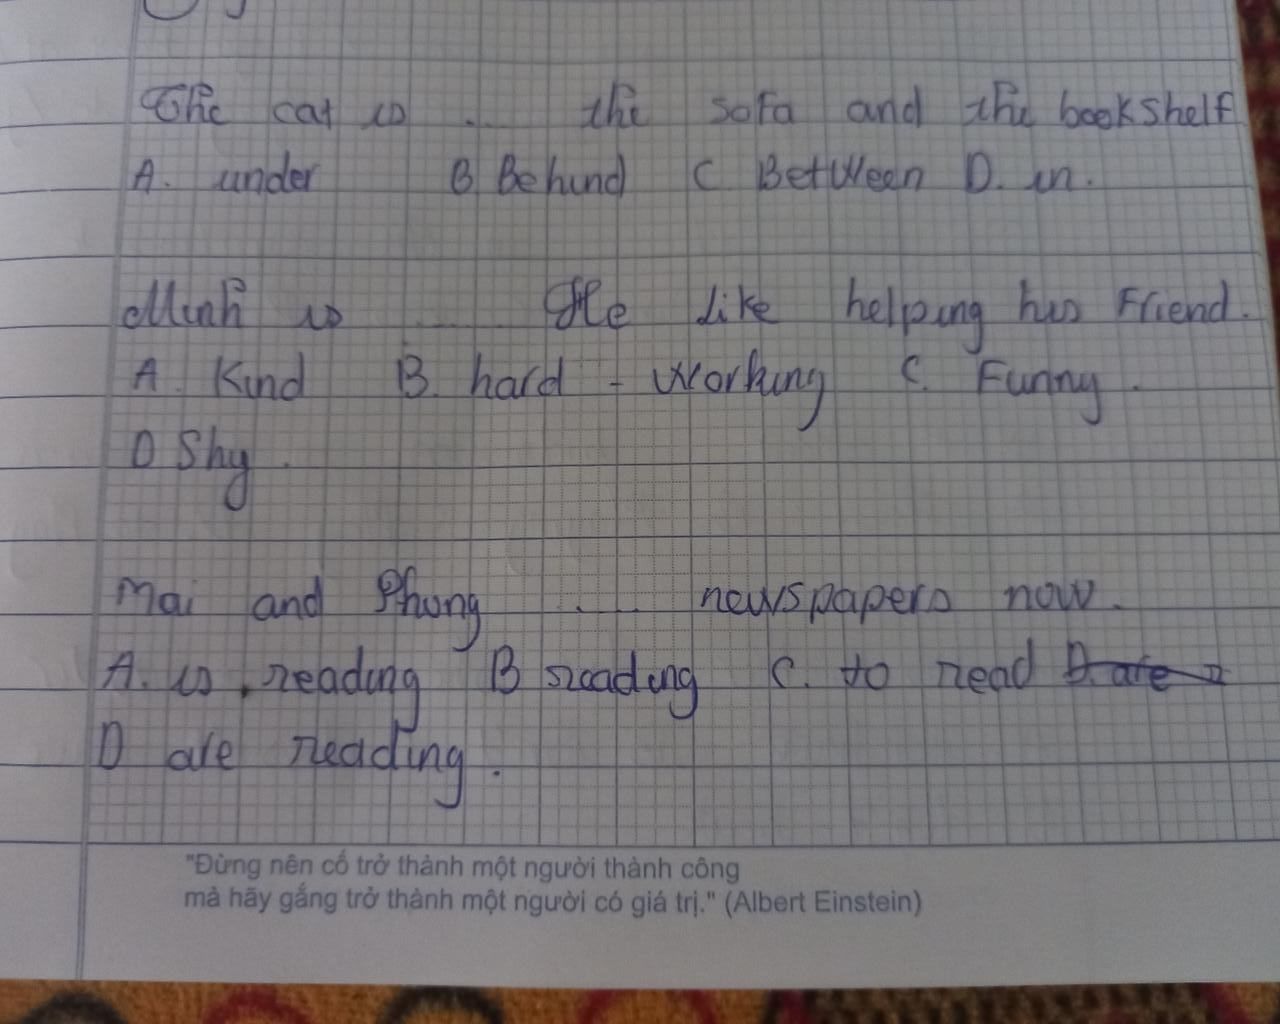 The cat is .... the sofa and the bookshelf
A. under B Behind C Between D. in.
Minh is ........ He like helping his Friend.
A. Kind B. hard - Working C. Funny.
D Shy.
Mai and Phong ........ newspapers now.
A. is reading B reading C. to read D. are
D are reading.
"Đừng nên cố trở thành một người thành công
mà hãy gắng trở thành một người có giá trị." (Albert Einstein)